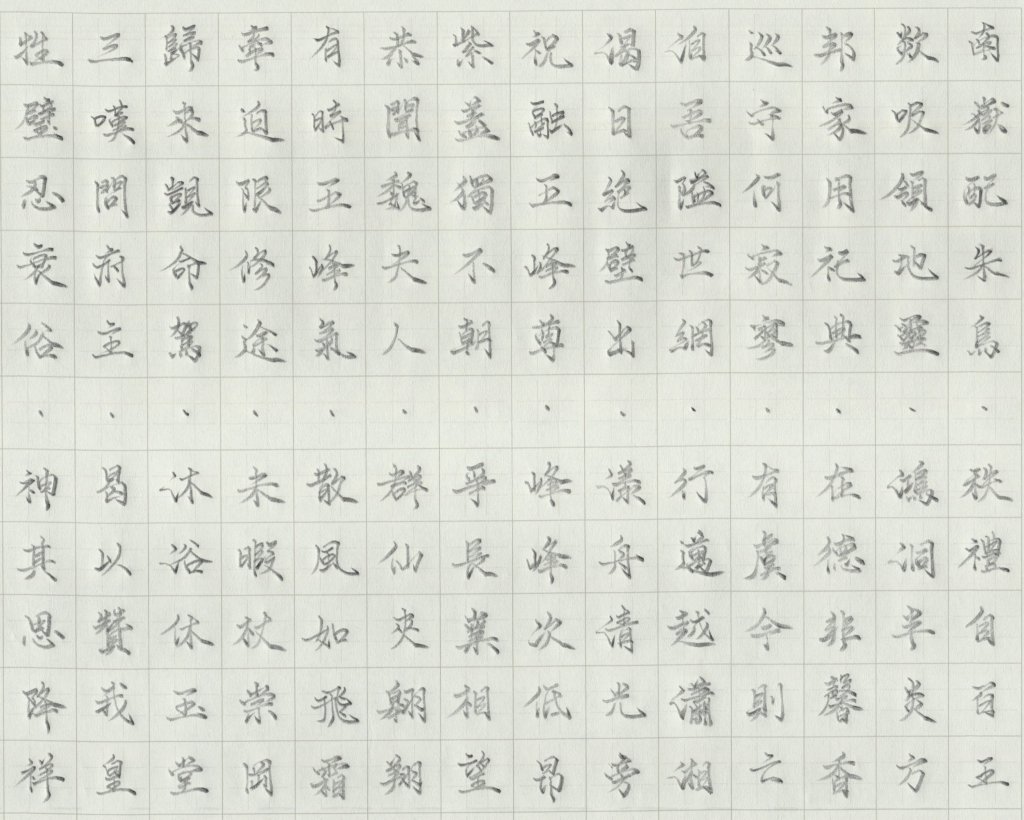 南嶽配朱鳥、秩禮自百王
欻吸領地靈、鴻洞半炎方
邦家用祀典、在德非馨香
巡守何寂寥、有虞今則亡
洎吾隘世網、行邁越瀟湘
渴日絕壁出、漾舟清光旁
祝融五峰尊、峰峰次低昂
紫蓋獨不朝、爭長嶪相望
恭聞魏夫人、群仙夾翱翔
有時五峰氣、散風如飛霜
牽迫限修途、未暇杖崇岡
歸來覬命駕、沐浴休玉堂
三嘆問府主、曷以贊我皇
牲璧忍衰俗、神其思降祥